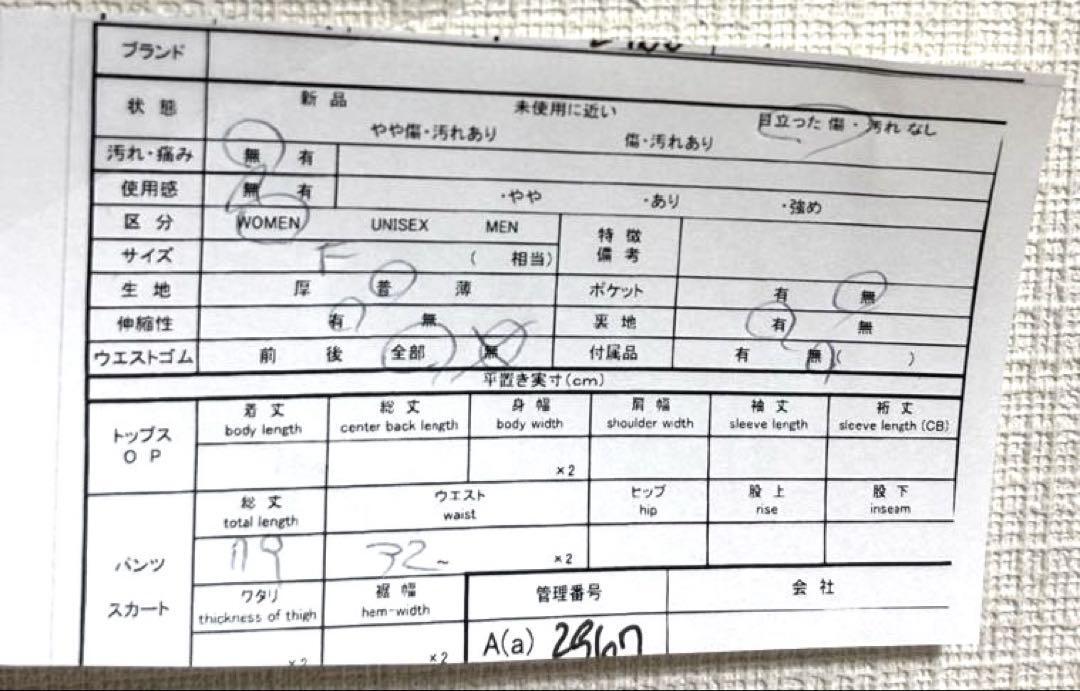 ブランド
状態 新品 未使用に近い 目立った傷・汚れなし
やや傷・汚れあり 傷・汚れあり
汚れ・痛み 無 有
使用感 無 有 ・やや ・あり ・強め
区分 WOMEN UNISEX MEN 特徴
備考
サイズ F ( 相当)
生地 厚 普 薄 ポケット 有 無
伸縮性 有 無 裏地 有 無
ウエストゴム 前 後 全部 無 付属品 有 無 ( )
平置き実寸(cm)
トップス
O P
着丈 総丈 身幅 肩幅 袖丈 裄丈
body length center back length body width shoulder width sleeve length sleeve length (CB)
×2
パンツ
スカート
総丈 ウエスト ヒップ 股上 股下
total length waist hip rise inseam
32~ ×2
ワタリ 裾幅 管理番号 会社
thickness of thigh hem-width
×2 ×2 A(a)